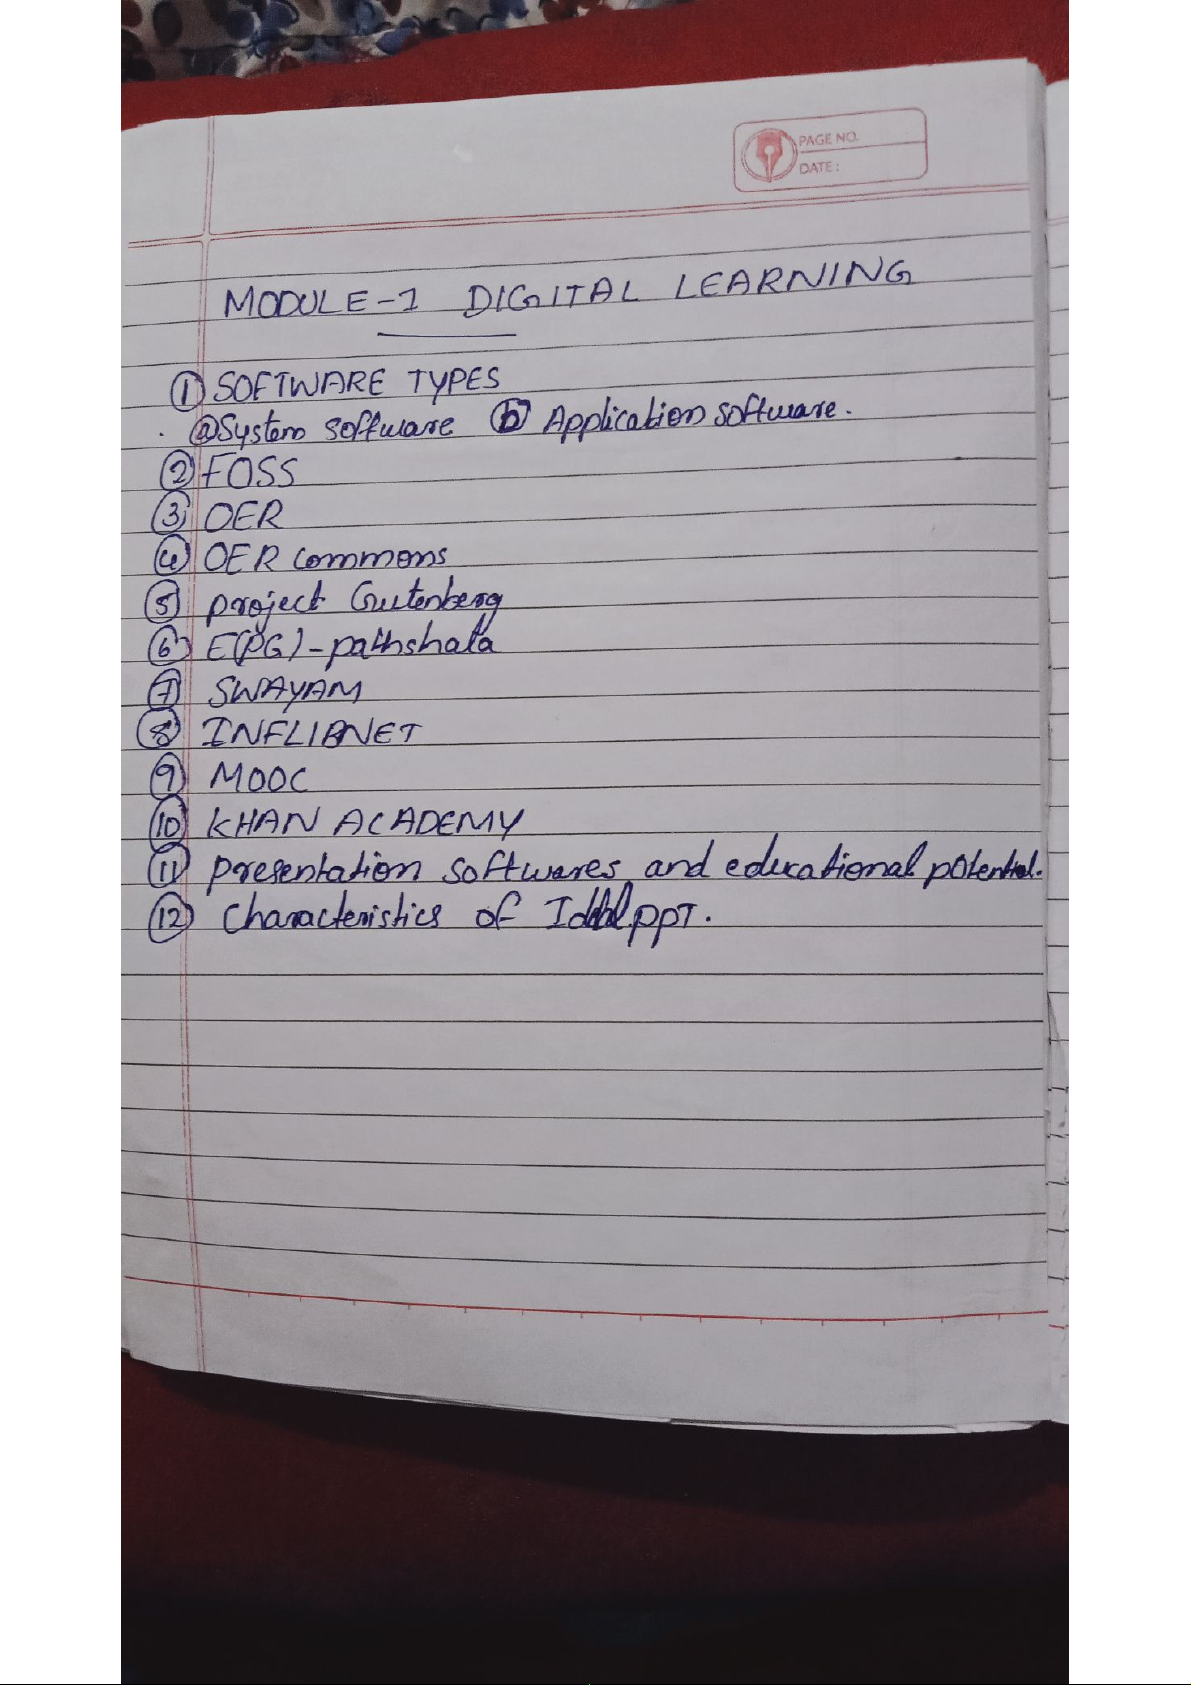 PAGE NO.
DATE:
MODULE-1 DIGITAL LEARNING
① SOFTWARE TYPES
ⓐ System software ⓑ Application software.
② FOSS
③ OER
④ OER commons
⑤ project Gutenberg
⑥ E(PG)-pathshala
⑦ SWAYAM
⑧ INFLIBNET
⑨ MOOC
⑩ KHAN ACADEMY
⑪ presentation softwares and educational potential.
⑫ Characteristics of Ideal ppT.